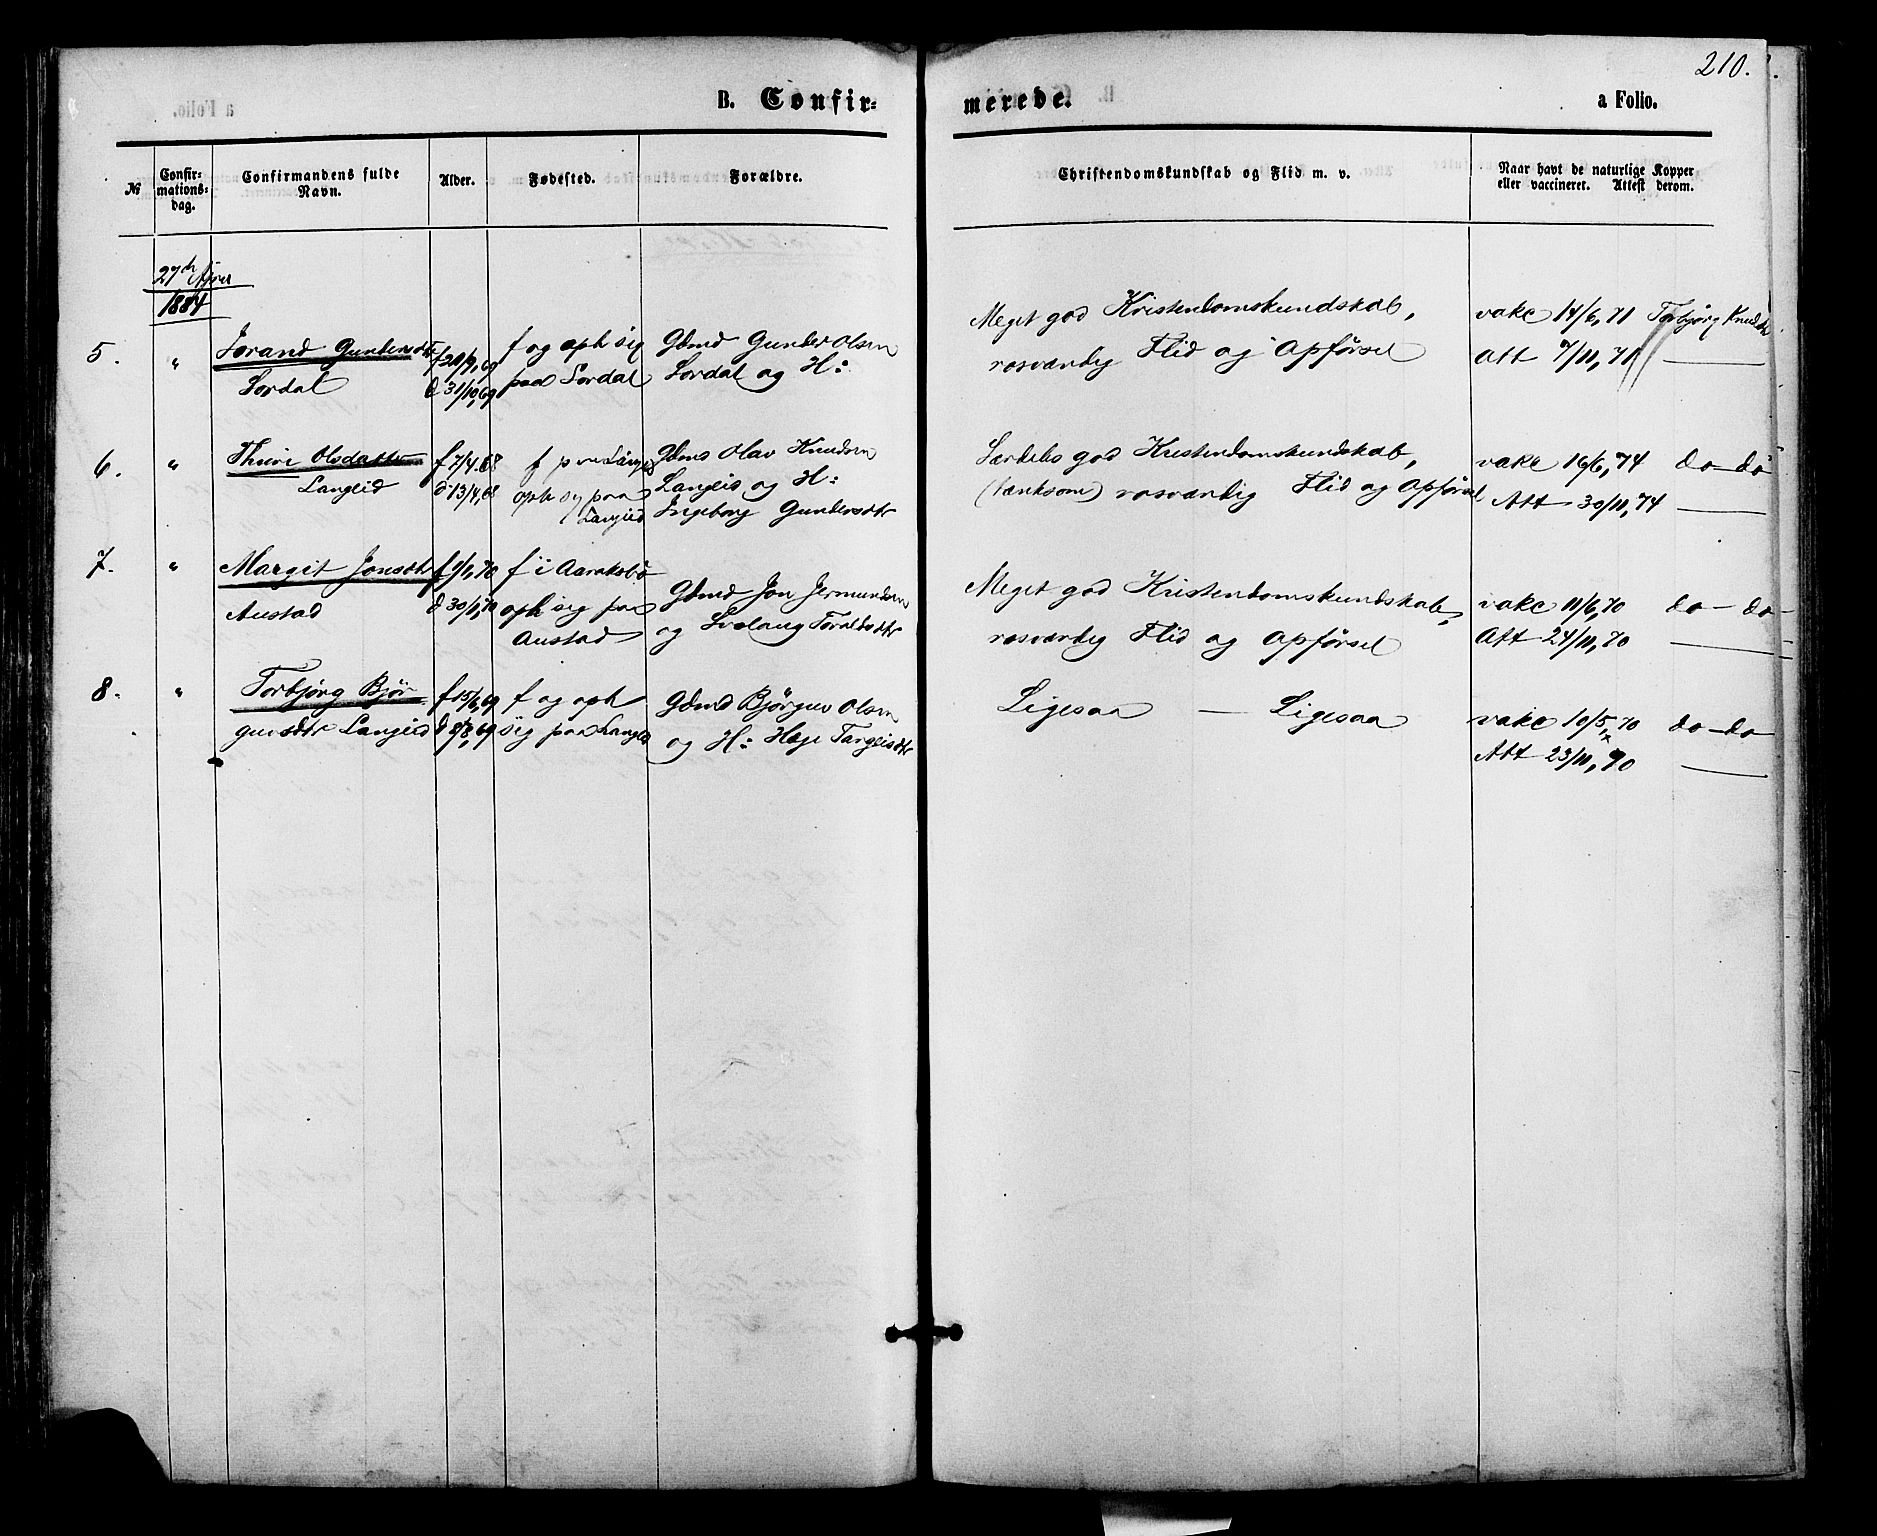 210.
B. Confir-
merede.
a Folio.
№
Confir-
mations-
dag.
Confirmandens fulde
Navn.
Alder.
Fødested.
Forældre.
Christendomskundskab og Flid m. v.
Naar havt de naturlige Kopper
eller vaccineret. Attest derom.
27de April
1884
5. " Jorand Gundersdtr f 20/9, 69 f og oph sig Gbmd Gunder Olsen Meget god Kristendomskundskab, vakc 14/6, 71 Torbjørg Knudsdtr
Lordal d 31/10, 69 paa Lordal Lordal og H: rosværdig Flid og Opførsel Att 7/11, 71 —
6. " Thuri Olsdatter f 7/4. 68 f paa Langeid Gbmd Olav Knudsen Særdeles god Kristendomskundskab, vakc 16/6, 74 do – do
Langeid d 13/4, 68 oph sig paa Langeid og H: (tænksom) rosværdig Flid og Opførsel Att 30/11, 74 —
Langeid Ingeborg Gundersdtr
7. " Margit Jonsdtr f 1/1, 70 f i Aaraksbø Gbmd Jon Jermundsen Meget god Kristendomskundskab, vakc 11/6, 70 do – do –
Austad d 30/1, 70 oph sig paa og Svalaug Toraldsdtr rosværdig Flid og Opførsel Att 24/11, 70 —
Austad
8. " Torbjørg Bjør- f 15/6, 69 f og oph Gbmd Bjørguv Olsen Ligesaa — Ligesaa vakc 10/5, 70 do – do
guvsdtr Langeid d 8/8, 69 sig paa Langeid og H: Hæge Targeisdtr Att 23/11, 70 —